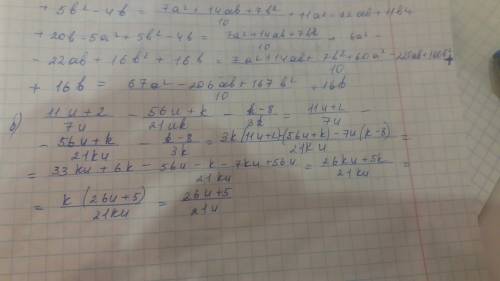 + 5b² - 4b = (7a² + 14ab + 7b²)/10 + 11a² - 22ab + 11b²
+ 20b - 5a² + 5b² - 4b = (7a² + 14ab + 7b²)/10 + 6a² -
- 22ab + 16b² + 16b = (7a² + 14ab + 7b² + 60a² - 220ab + 160b²)/10 +
+ 16b = (67a² - 206ab + 167b²)/10 + 16b
(11u + 2)/7u - (56u + k)/21uk - (k - 8)/3k = (11u + 2)/7u -
- (56u + k)/21ku - (k - 8)/3k = (3k(11u+2)-(56u+k) - 7u(k-8))/21ku =
= (33ku + 6k - 56u - k - 7ku + 56u)/21ku = (26ku + 5k)/21ku =
= k(26u + 5)/21ku = (26u + 5)/21u